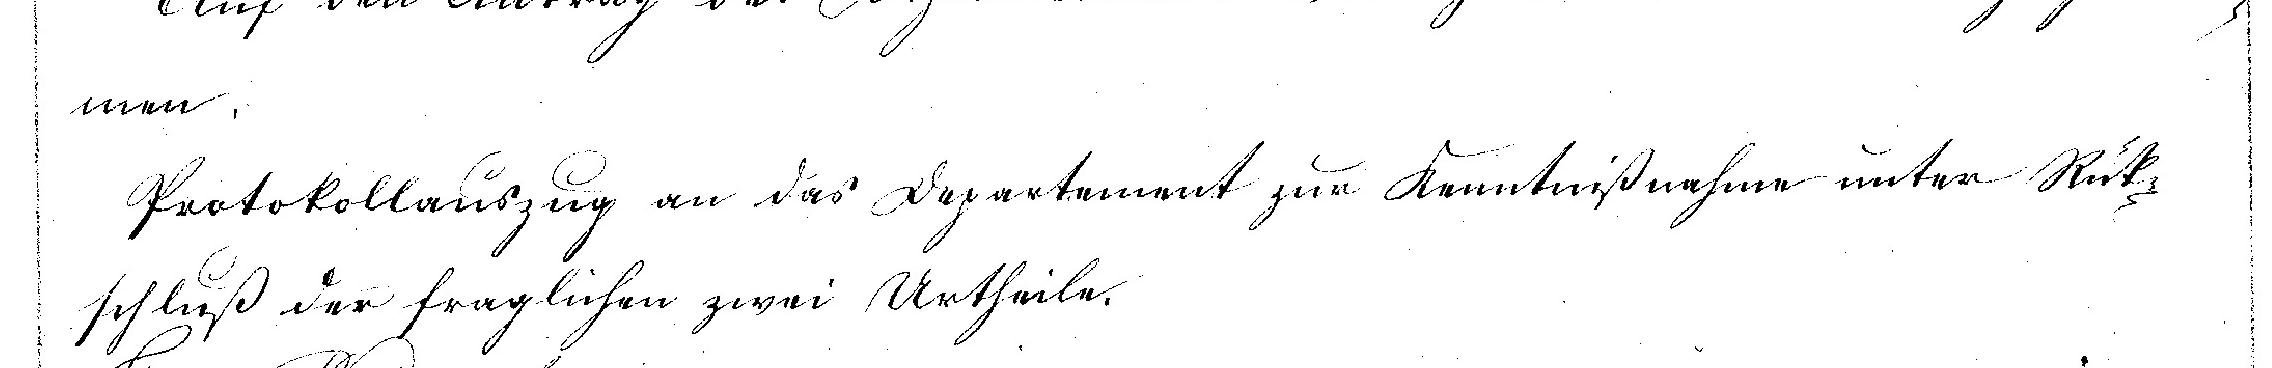 Auf den Antrag des
men.
Protokollauszug an das Departement zur Kenntnißnahme unter Rük-
schluß der fraglichen zwei Urtheile.